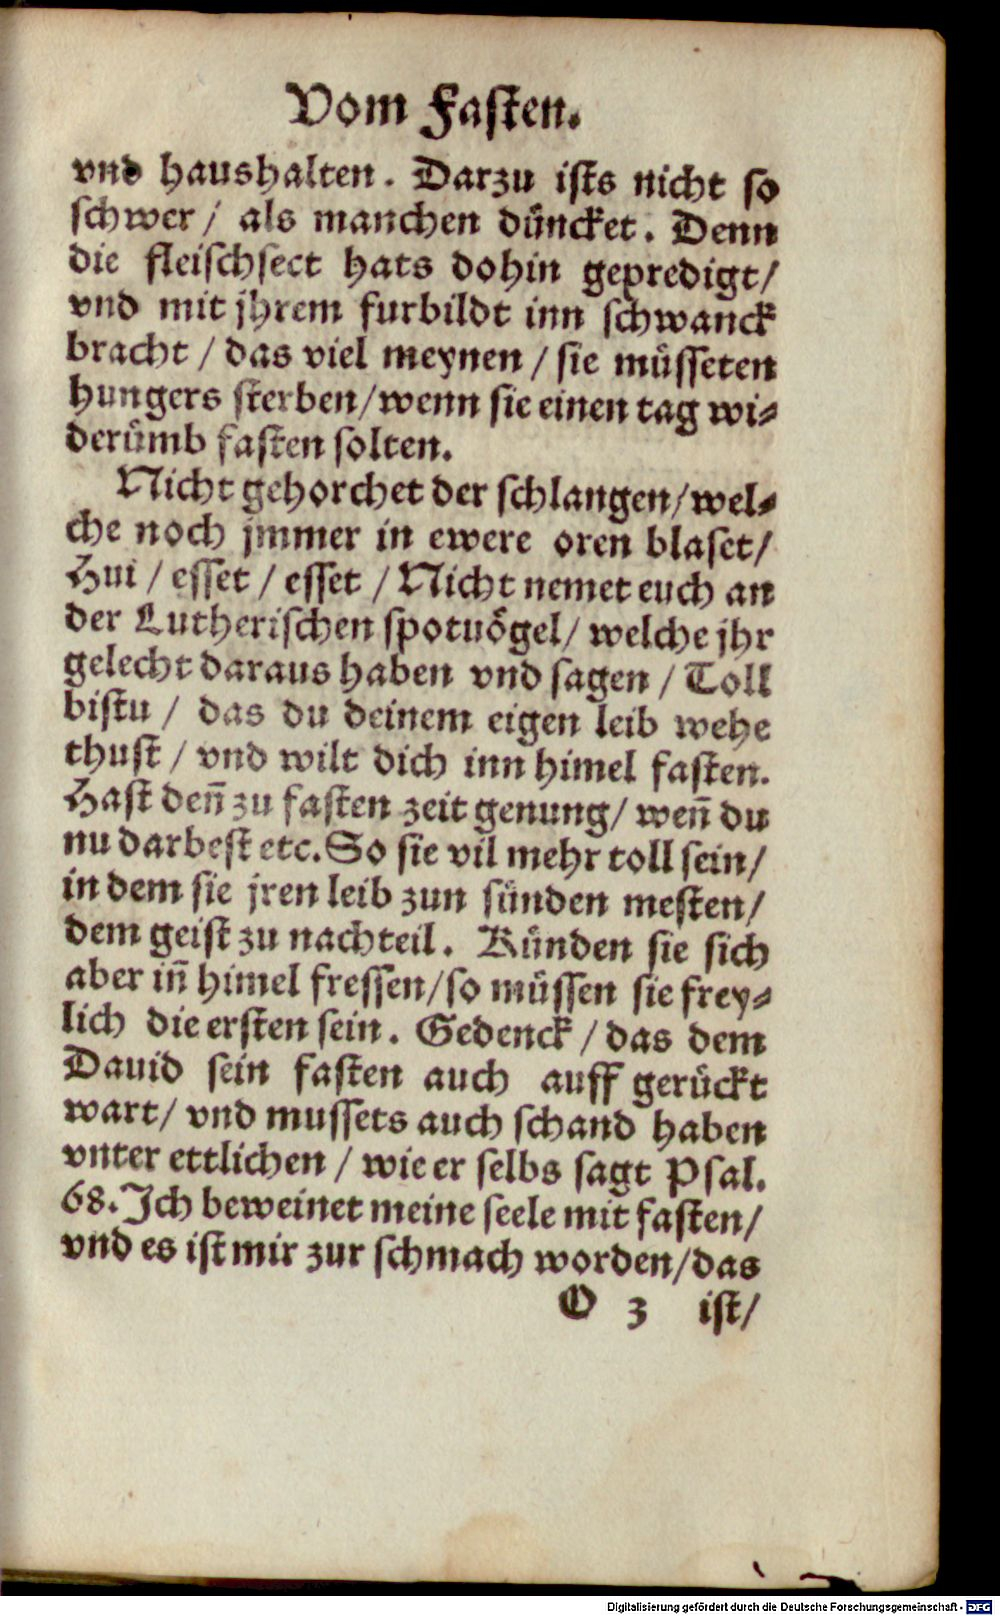 Vom Fasten.
vnd haushalten. Darzu ists nicht so
schwer / als manchen düncket. Denn
die fleischsect hats dohin gepredigt/
vnd mit jhrem furbildt inn schwanck
bracht / das viel meynen / sie müsseten
hungers sterben/wenn sie einen tag wi⸗
derümb fasten solten.
Nicht gehorchet der schlangen/wel⸗
che noch jmmer in ewere oren blaset/
Hui / esset / esset / Nicht nemet euch an
der Lutherischen spotuögel/ welche jhr
gelecht daraus haben vnd sagen / Toll
bistu / das du deinem eigen leib wehe
thust / vnd wilt dich inn himel fasten.
Hast deñ zu fasten zeit genung/ weñ du
nu darbest etc. So sie vil mehr toll sein/
in dem sie jren leib zun sünden mesten/
dem geist zu nachteil. Künden sie sich
aber iñ himel fressen/so müssen sie frey⸗
lich die ersten sein. Gedenck / das dem
Dauid sein fasten auch auff gerückt
wart/ vnd mussets auch schand haben
vnter ettlichen / wie er selbs sagt Psal.
68. Ich beweinet meine seele mit fasten/
vnd es ist mir zur schmach worden/das
O 3 ist/
Digitalisierung gefördert durch die Deutsche Forschungsgemeinschaft - DFG